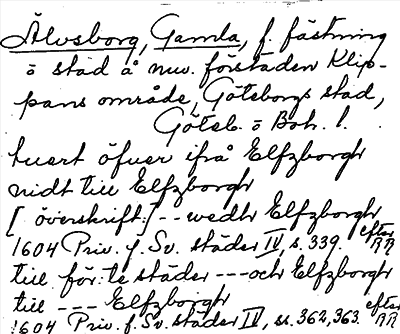 Älvsborg, Gamla, f. fästning
o stad å nuv. förstaden Klip-
pans område, Göteborgs stad,
Göteb. o Boh. l.
tuert öfuer ifrå Elfzborgh
nidt till Elfzborgh
[överskrift:] -- wedh Elfzborgh
1604 Priv. f. Sv. städer IV, s. 339. efter RR
till för:te städer --- och Elfzborgh
till --- Elfzborgh
1604 Priv. f. Sv. städer IV, ss. 362, 363. efter RR